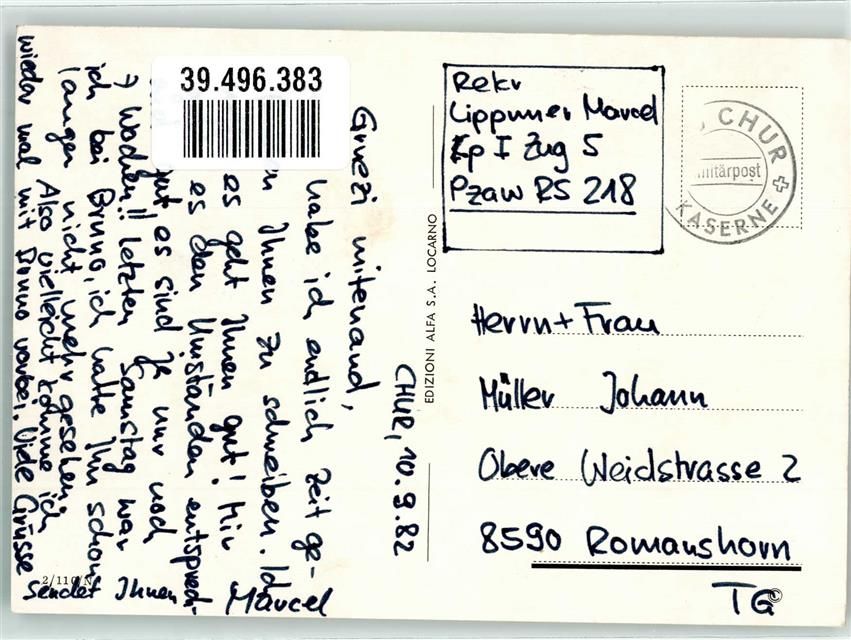 CHUR, 10.9.82
Grüezi mitenand,
habe ich endlich Zeit ge-
Ihnen zu schreiben. Ich
es geht Ihnen gut! Mir
es den Umständen entsprech-
gut, es sind ja nur noch
7 Wochen!! Letzten Samstag war
ich bei Bruno, ich hatte Ihn schon
langen nicht mehr gesehen,
Also vielleicht komme ich
wieder mal mit Bruno vorbei. Viele Grüsse
sendet Ihnen Marcel
39.496.383
2/110/N
EDIZIONI ALFA S.A. LOCARNO
Rekr
Lippuner Marcel
Kp I Zug 5
Pzaw RS 218
CHUR
militärpost
KASERNE
Herrn + Frau
Müller Johann
Obere Weidstrasse 2
8590 Romanshorn
TG